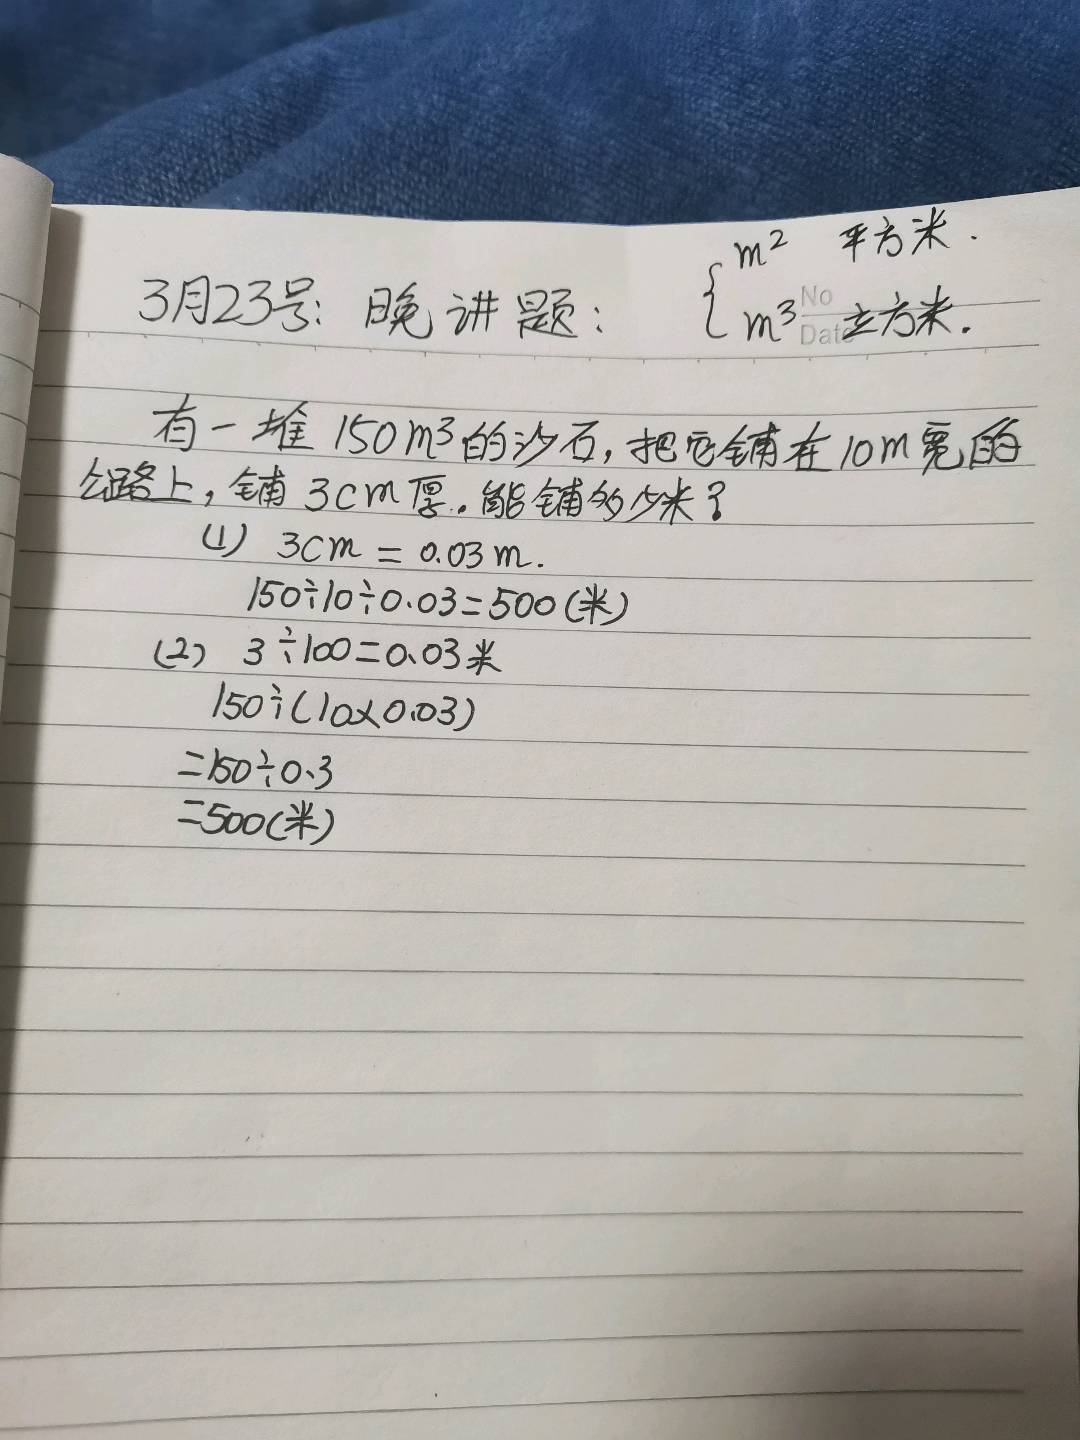 m² 平方米.
3月23号: 晚讲题:
No
m³ 立方米.
Date
有一堆150m³的沙石,把它铺在10m宽的
公路上,铺3cm厚。能铺多少米?
(1) 3cm=0.03m.
150÷10÷0.03=500(米)
(2) 3÷100=0.03米
150÷(10×0.03)
=150÷0.3
=500(米)